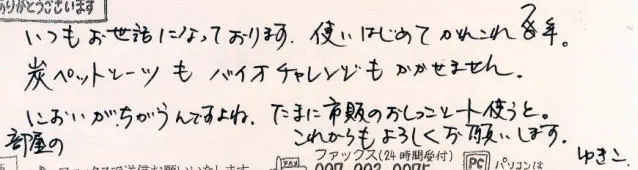 ありがとうございます
いつもお世話になっております. 使いはじめてかれこれ8年。
炭ペットシーツも バイオチャレンジも かかせません。
部屋の
においがちがうんですよね. たまに市販のおしっこシート使うと。
これからもよろしくお願いします.
ゆきこ
ファックスで送信お願いいたします
FAX
ファックス(24時間受付)
PC
パソコンは